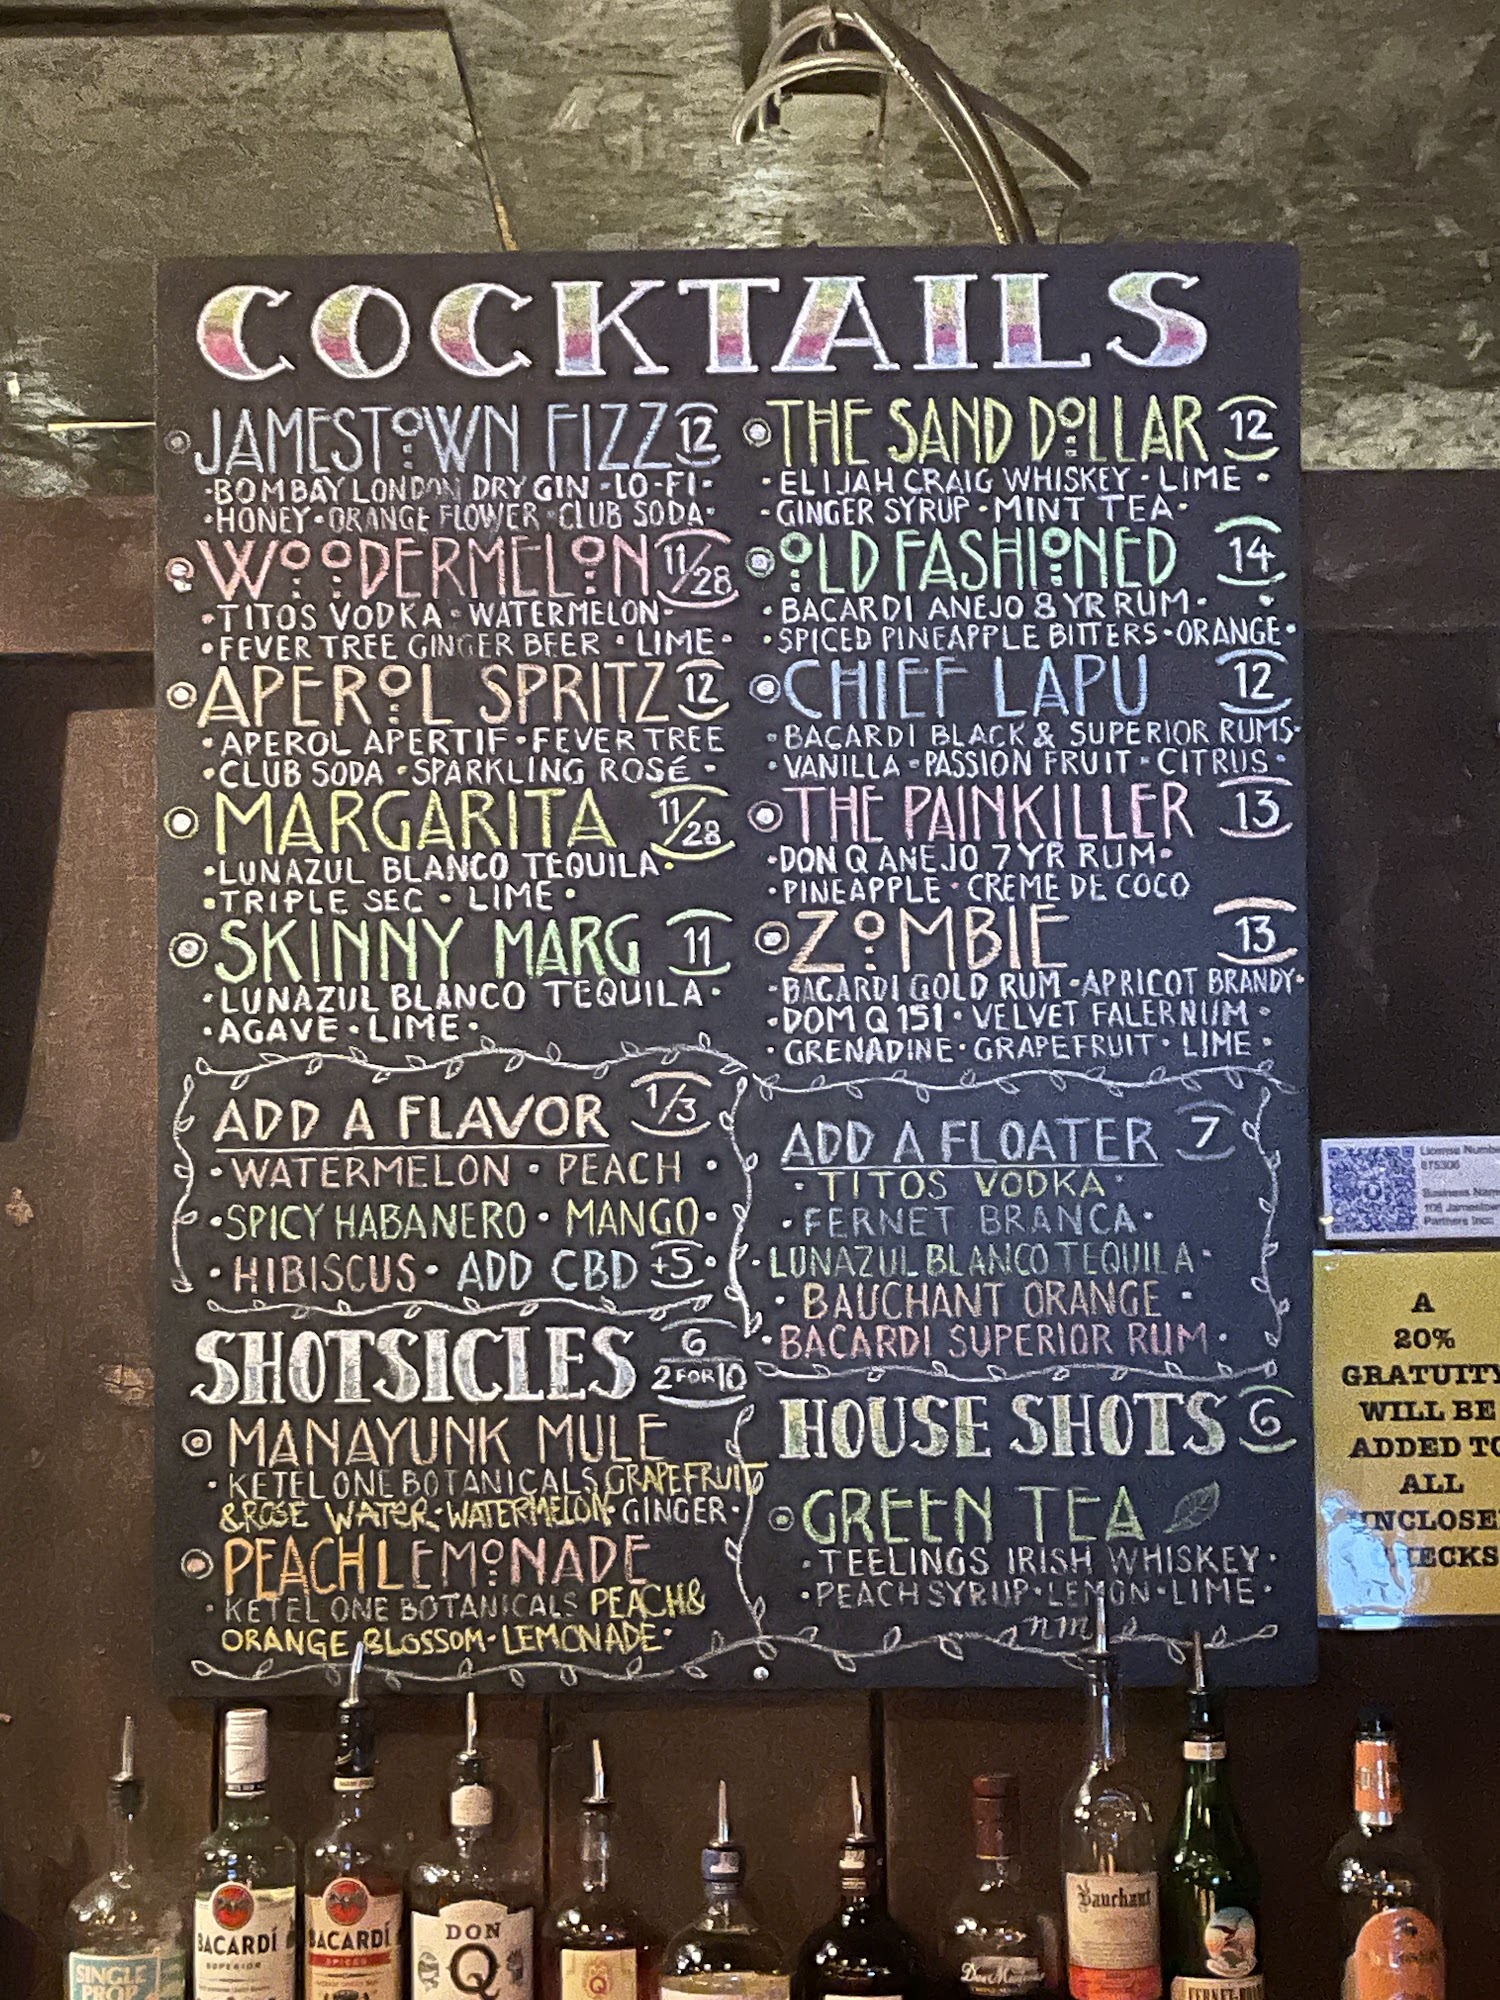 COCKTAILS
JAMESTOWN FIZZ 12
·BOMBAY LONDON DRY GIN·LO-FI·
·HONEY·ORANGE FLOWER·CLUB SODA·
WOODERMELON 11/28
·TITOS VODKA·WATERMELON·
·FEVER TREE GINGER BEER·LIME·
APEROL SPRITZ 12
·APEROL APERTIF·FEVER TREE
·CLUB SODA·SPARKLING ROSÉ·
MARGARITA 11/28
·LUNAZUL BLANCO TEQUILA·
·TRIPLE SEC·LIME·
SKINNY MARG 11
·LUNAZUL BLANCO TEQUILA·
·AGAVE·LIME·
ADD A FLAVOR 1/3
·WATERMELON·PEACH·
·SPICY HABANERO·MANGO·
·HIBISCUS·ADD CBD +5·
SHOTSICLES 6
2 FOR 10
MANAYUNK MULE
·KETEL ONE BOTANICALS GRAPEFRUIT
&ROSE WATER·WATERMELON·GINGER·
PEACH LEMONADE
·KETEL ONE BOTANICALS PEACH&
ORANGE BLOSSOM·LEMONADE·
THE SAND DOLLAR 12
·ELIJAH CRAIG WHISKEY·LIME·
·GINGER SYRUP·MINT TEA·
OLD FASHIONED 14
·BACARDI ANEJO 8 YR RUM·
·SPICED PINEAPPLE BITTERS·ORANGE·
CHIEF LAPU 12
·BACARDI BLACK & SUPERIOR RUMS·
·VANILLA·PASSION FRUIT·CITRUS·
THE PAINKILLER 13
·DON Q ANEJO 7 YR RUM·
·PINEAPPLE·CREME DE COCO
ZOMBIE 13
·BACARDI GOLD RUM·APRICOT BRANDY·
·DOM Q 151·VELVET FALERNUM·
·GRENADINE·GRAPEFRUIT·LIME·
ADD A FLOATER 7
·TITOS VODKA·
·FERNET BRANCA·
·LUNAZUL BLANCO TEQUILA·
·BAUCHANT ORANGE·
·BACARDI SUPERIOR RUM·
HOUSE SHOTS 6
GREEN TEA
·TEELINGS IRISH WHISKEY·
·PEACH SYRUP·LEMON·LIME·
nm
License Numbe
Business Nam
108 Jamestow
Partners Inc
A
20%
GRATUITY
WILL BE
ADDED TO
ALL
UNCLOSE
CHECKS
SINGLE
PROP
BACARDÍ
SUPERIOR
BACARDÍ
SPICED
DON
Q
Q
Bauchant
FERNET-BRA